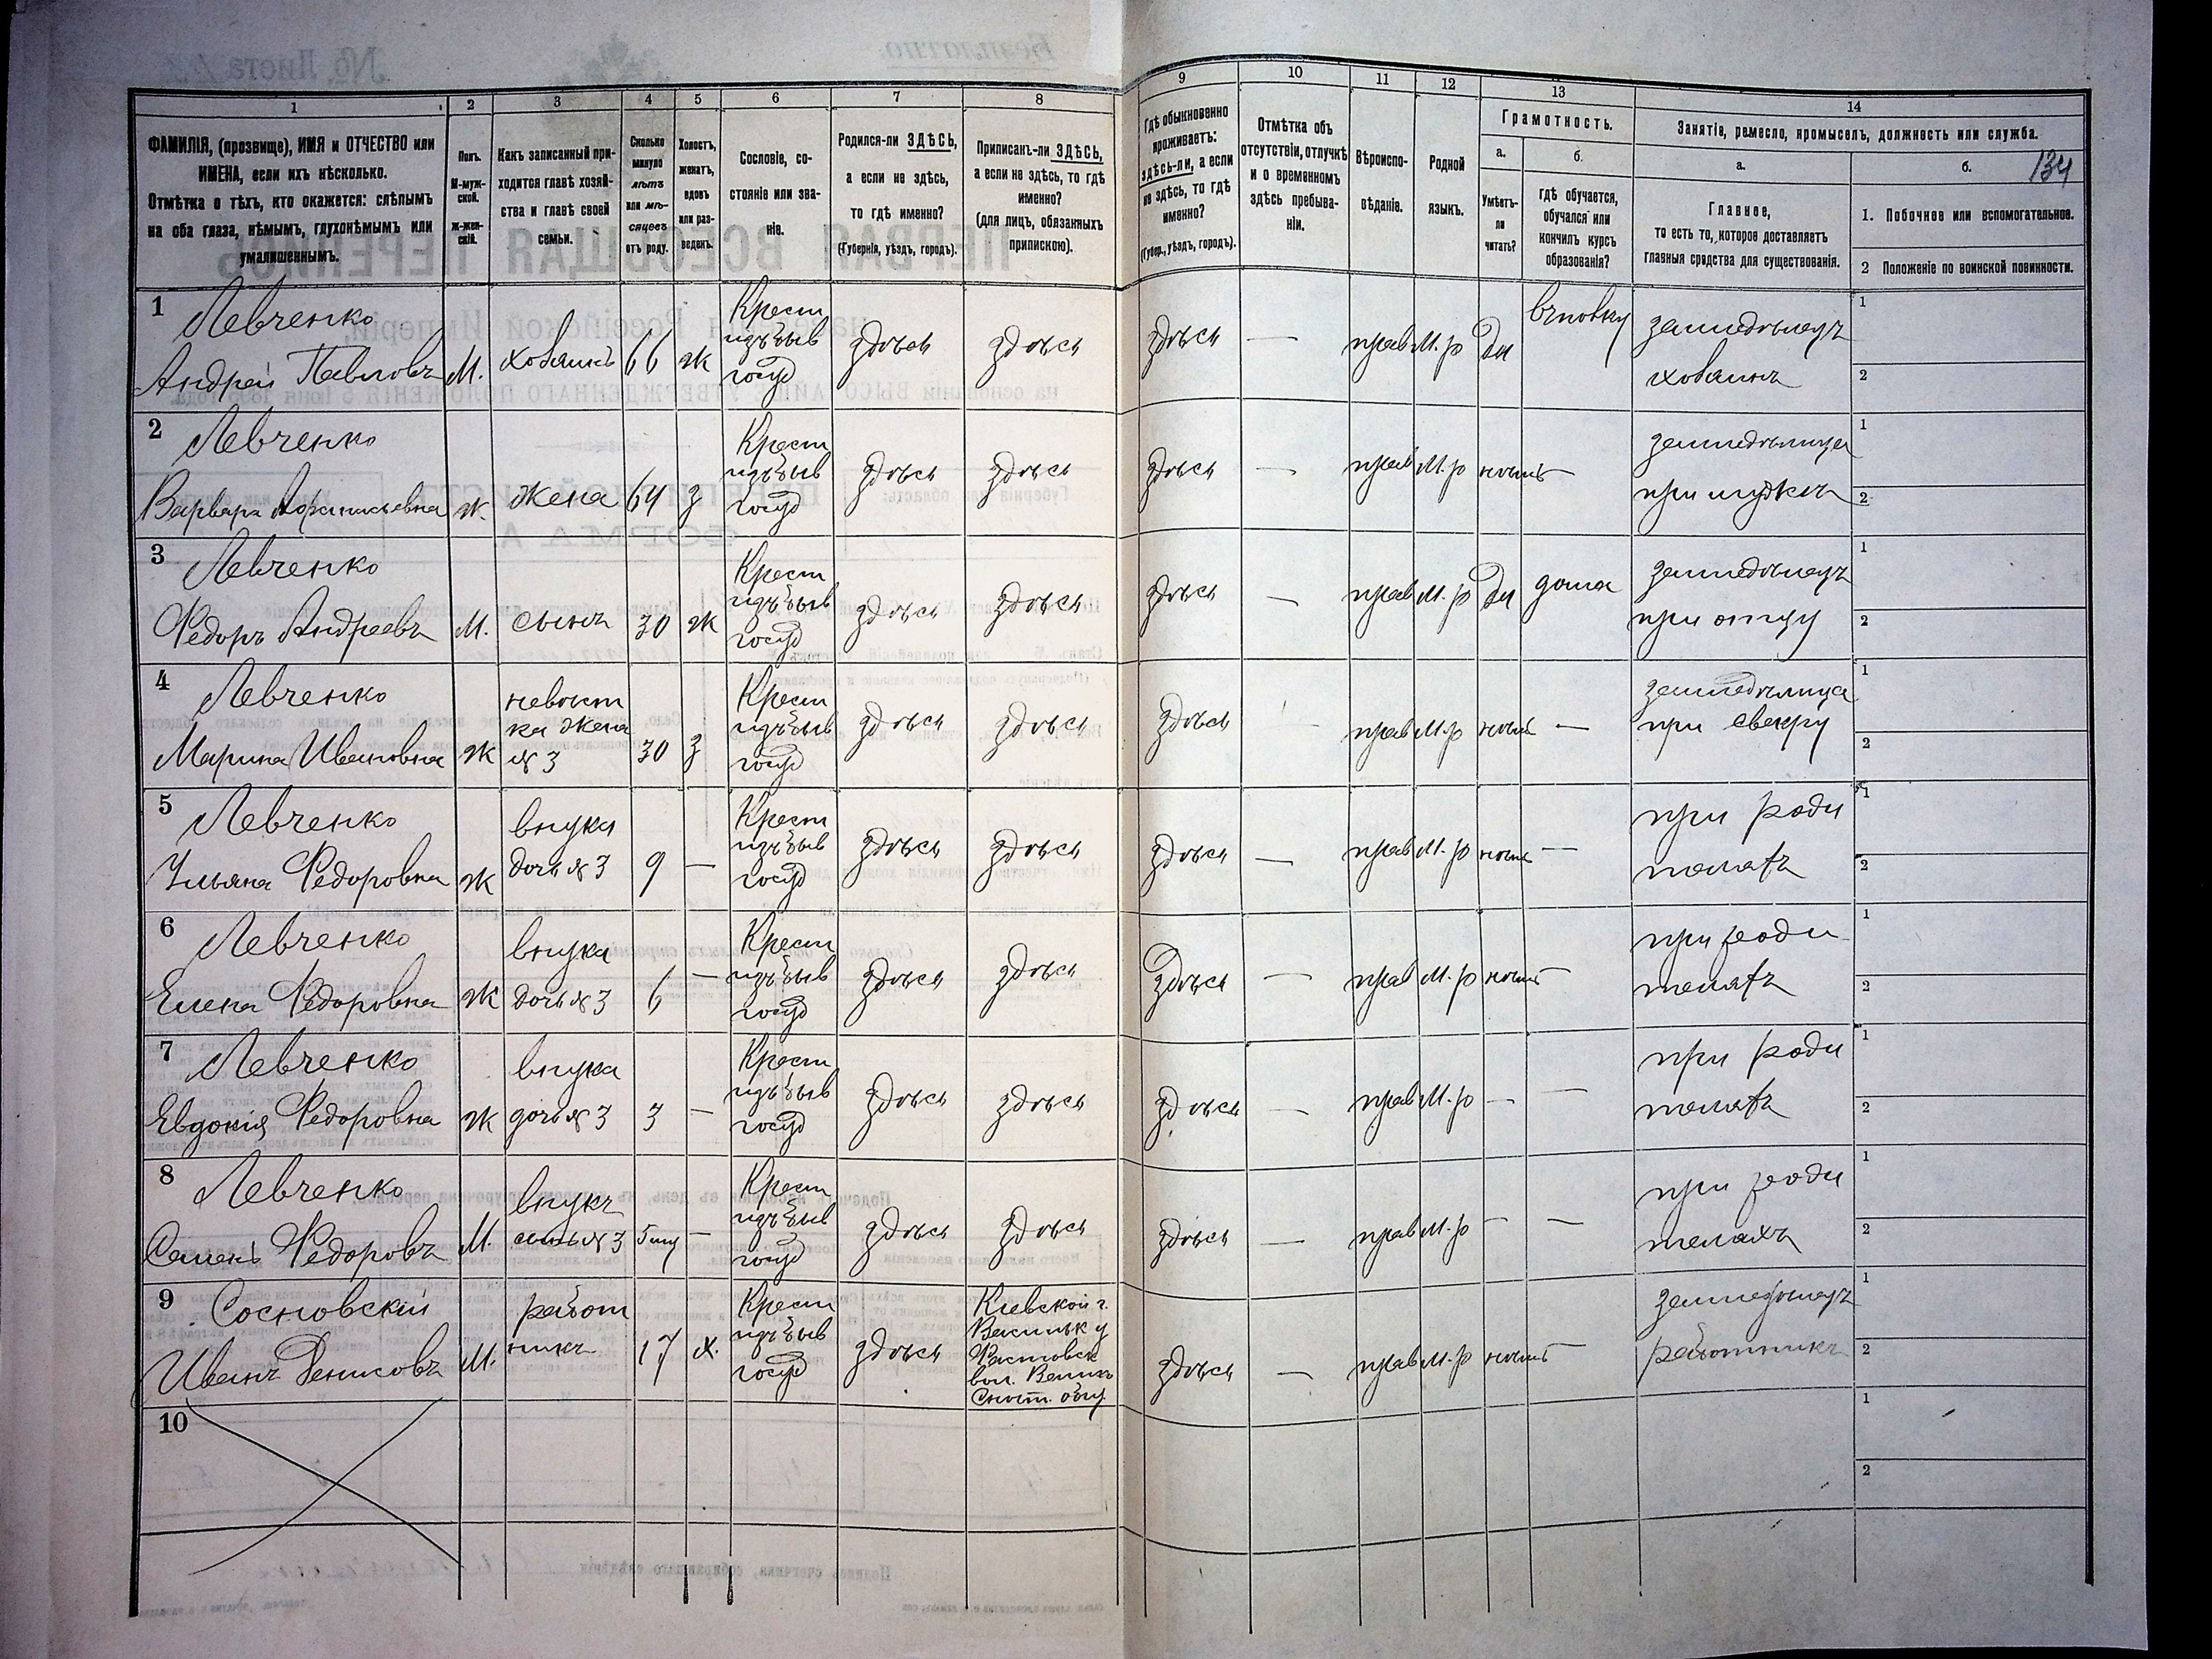 1 2 3 4 5 6 7 8 9 10 11 12 13 14
ФАМИЛІЯ, (прозвище), ИМЯ и ОТЧЕСТВО или
ИМЕНА, если ихъ нѣсколько.
Отмѣтка о тѣхъ, кто окажется: слѣпымъ
на оба глаза, нѣмымъ, глухонѣмымъ или
умалишеннымъ.
Полъ.
М-муж-
ской.
Ж-жен-
скій.
Какъ записанный при-
ходится главѣ хозяй-
ства и главѣ своей
семьи.
Сколько
минуло
лѣтъ
или мѣ-
сяцевъ
отъ роду.
Холостъ,
женатъ,
вдовъ
или раз-
веденъ.
Сословіе, со-
стояніе или зва-
ніе.
Родился-ли ЗДѢСЬ,
а если не здѣсь,
то гдѣ именно?
(Губернія, уѣздъ, городъ).
Приписанъ-ли ЗДѢСЬ,
а если не здѣсь, то гдѣ
именно?
(для лицъ, обязанныхъ
припискою).
Гдѣ обыкновенно
проживаетъ:
здѣсь-ли, а если
не здѣсь, то гдѣ
именно?
(Губер., уѣздъ, городъ).
Отмѣтка объ
отсутствіи, отлучкѣ
и о временномъ
здѣсь пребыва-
ніи.
Вѣроиспо-
вѣданіе.
Родной
языкъ.
Грамотность.
а.
Умѣетъ-
ли
читать?
б.
гдѣ обучается,
обучался или
кончилъ курсъ
образованія?
Занятіе, ремесло, промыселъ, должность или служба.
а.
Главное,
то есть то, которое доставляетъ
главныя средства для существованія.
б.
134
1. Побочное или вспомогательное.
2 Положеніе по воинской повинности.
1 Левченко
Андрей Павловъ М. хозяинъ 66 ж
Крест
изъ быв
госуд
здѣсь здѣсь здѣсь — прав М.р Да
земледѣлецъ
хозяинъ
1
2
2 Левченко
Варвара Афанасьевна ж. жена 64 з
Крест
изъ быв
госуд
здѣсь здѣсь здѣсь — прав М.р нѣтъ —
земледѣлица
при мужѣ
1
2
3 Левченко
Федоръ Андреевъ М. сынъ 30 ж
Крест
изъ быв
госуд
здѣсь здѣсь здѣсь — прав М.р Да дома
земледѣлецъ
при отцу
1
2
4 Левченко
Марина Ивановна ж
невѣст
ка жена
№ 3
30 з
Крест
изъ быв
госуд
здѣсь здѣсь здѣсь — прав М.р нѣтъ —
земледѣлица
при свекру
1
2
5 Левченко
Ульяна Федоровна ж
внука
дочь № 3
9 —
Крест
изъ быв
госуд
здѣсь здѣсь здѣсь — прав М.р нѣтъ —
при роди
теляхъ
1
2
6 Левченко
Елена Федоровна ж
внука
дочь № 3
6 —
Крест
изъ быв
госуд
здѣсь здѣсь здѣсь — прав М.р нѣтъ —
при роди
теляхъ
1
2
7 Левченко
Евдокія Федоровна ж
внука
дочь № 3
3 —
Крест
изъ быв
госуд
здѣсь здѣсь здѣсь — прав М.р — —
при роди
теляхъ
1
2
8 Левченко
Семенъ Федоровъ М.
внукъ
сынъ № 3
5 —
Крест
изъ быв
госуд
здѣсь здѣсь здѣсь — прав М.р — —
при роди
теляхъ
1
2
9 Сосновскій
Иванъ Денисовъ М.
работ
никъ
17 х.
Крест
изъ быв
госуд
здѣсь
Кіевской г.
Васильк у
Фастовск
вол. Велик
Снѣт. общ
здѣсь — прав М.р нѣтъ —
земледѣлецъ
работникъ
1
2
10
1
2